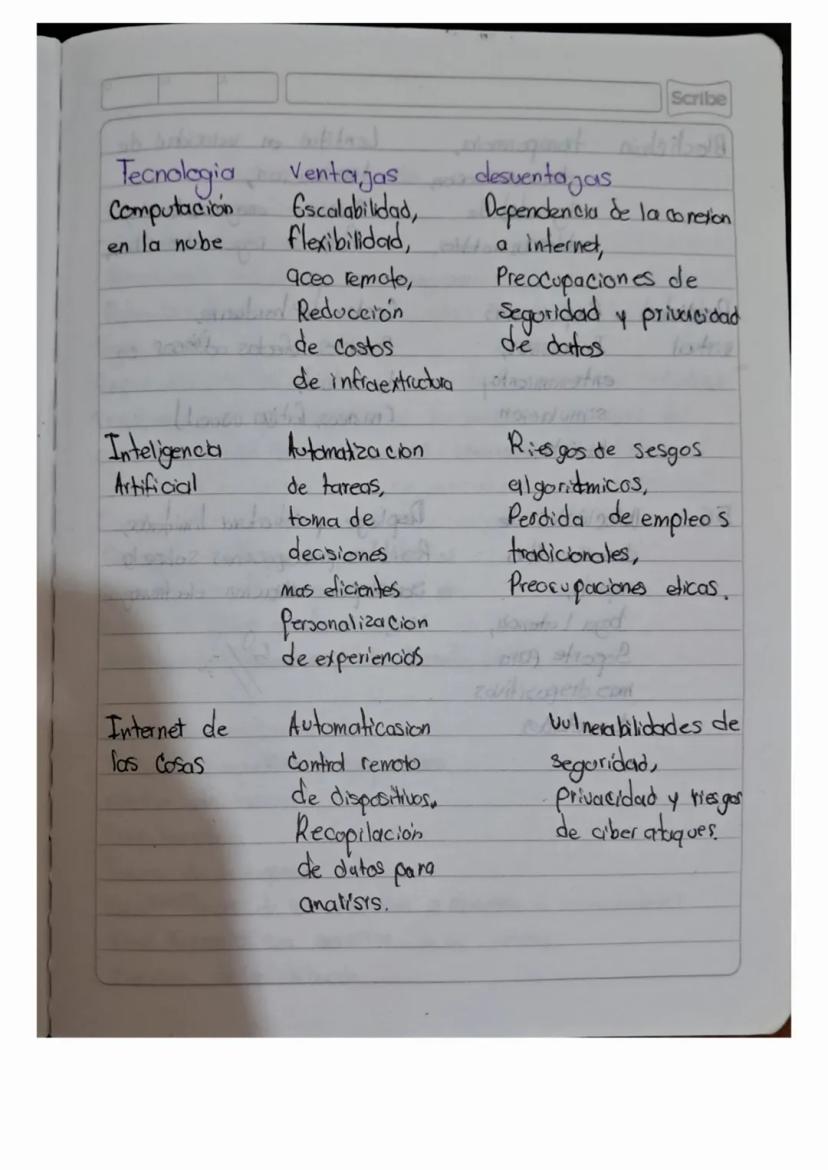 Scribe
Tecnologia Ventajas desventajas
Computación Escalabilidad, Dependencia de la conexion
en la nube flexibilidad, a internet,
aceo remoto, Preocupaciones de
Reducción Seguridad y privacidad
de costos de datos
de infraextructura
Inteligencia Automatizacion Riesgos de sesgos
Artificial de tareas, algoritmicos,
toma de Perdida de empleos
decisiones tradicionales,
mas eficientes Preocupaciones eticas.
Personalizacion
de experiencias
Internet de Automaticasion Vulnerabilidades de
las Cosas Control remoto seguridad,
de dispositivos, privacidad y riesgos
Recopilación de ciber atuques.
de datos para
analisis.